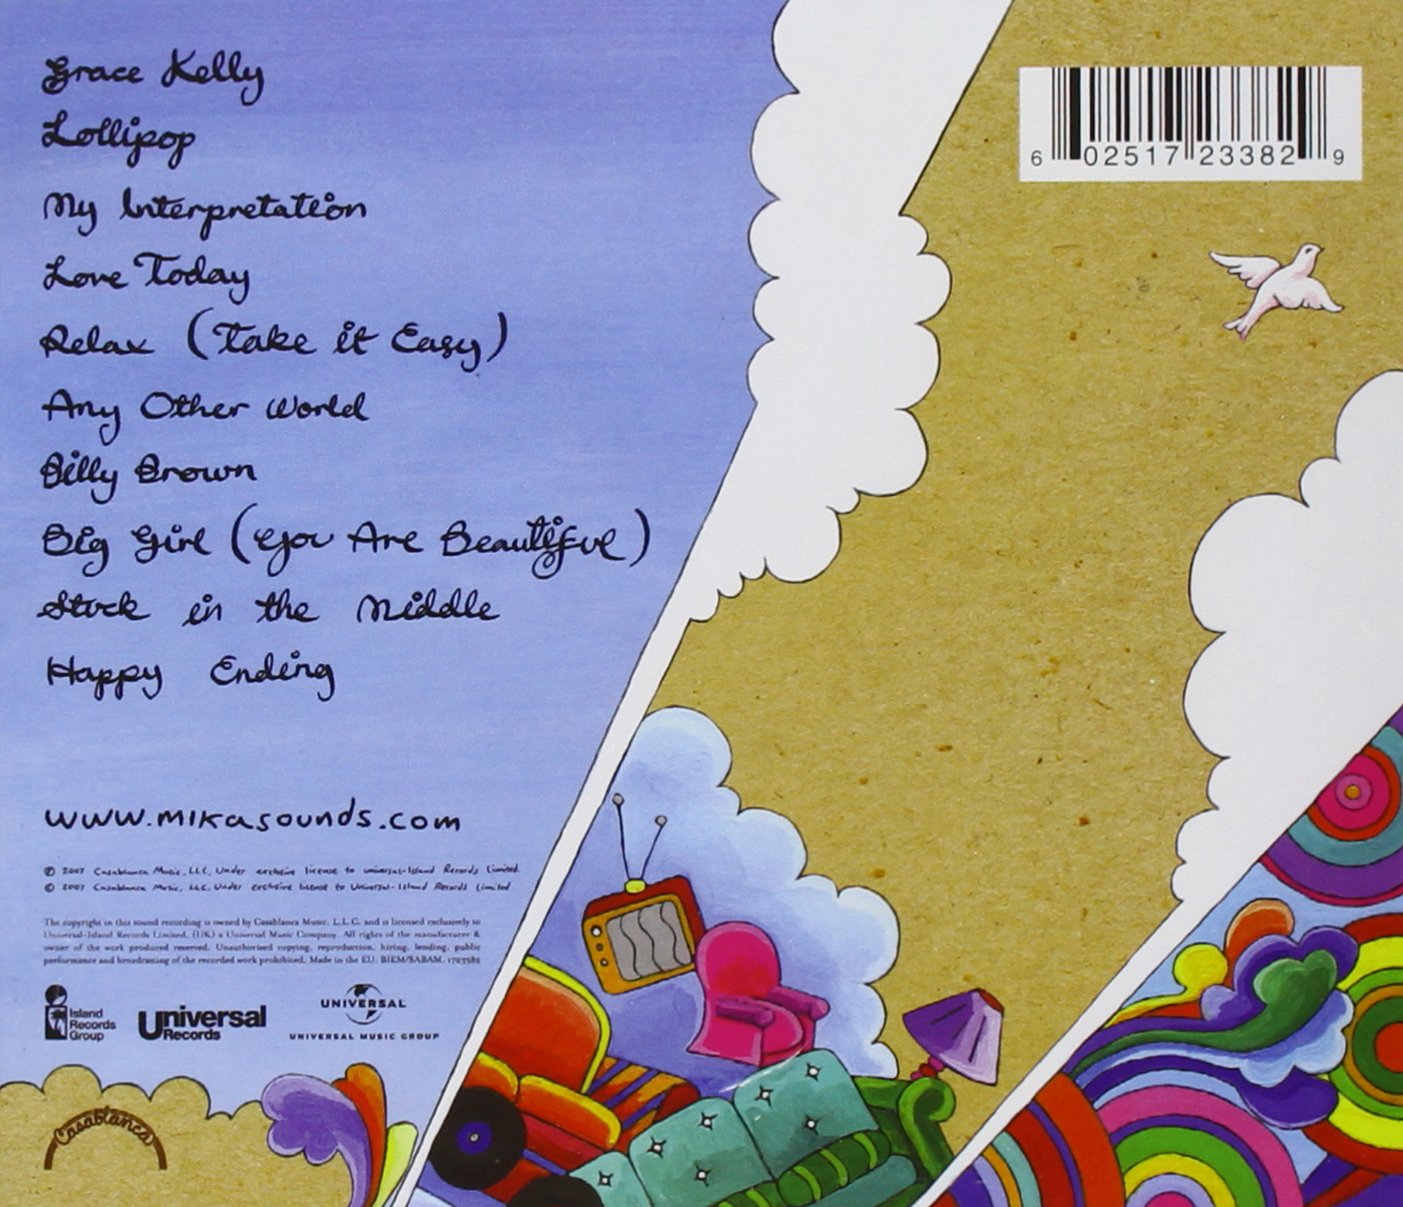 Grace Kelly
Lollipop
My Interpretation
Love Today
Relax (Take it Easy)
Any Other World
Billy Brown
Big Girl (You Are Beautiful)
Stuck in the Middle
Happy Ending
www.mikasounds.com
℗ 2007 Casablanca Music, LLC, Under exclusive license to Universal-Island Records Limited.
© 2007 Casablanca Music, LLC. Under exclusive license to Universal-Island Records Limited
The copyright in this sound recording is owned by Casablanca Music, L.L.C. and is licensed exclusively to
Universal-Island Records Limited, (UK) a Universal Music Company. All rights of the manufacturer &
owner of the work produced reserved. Unauthorised copying, reproduction, hiring, lending, public
performance and broadcasting of the recorded work prohibited. Made in the EU. BIEM/SABAM. 1723382
Island
Records
Group
Universal
Records
UNIVERSAL
UNIVERSAL MUSIC GROUP
Casablanca
6 02517 23382 9